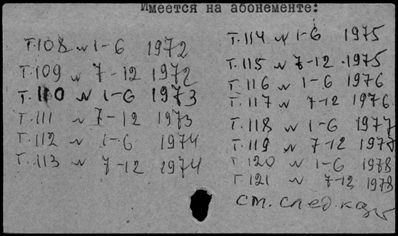 Имеется на абонементе:
Т.108 N 1-6 1972
Т.109 N 7-12 1972
Т.110 N 1-6 1973
Т.111 N 7-12 1973
Т.112 N 1-6 1974
Т.113 N 7-12 1974
Т.114 N 1-6 1975
Т.115 N 7-12 1975
Т.116 N 1-6 1976
Т.117 N 7-12 1976
Т.118 N 1-6 1977
Т.119 N 7-12 1977
Т.120 N 1-6 1978
Т.121 N 7-12 1978
см. след.